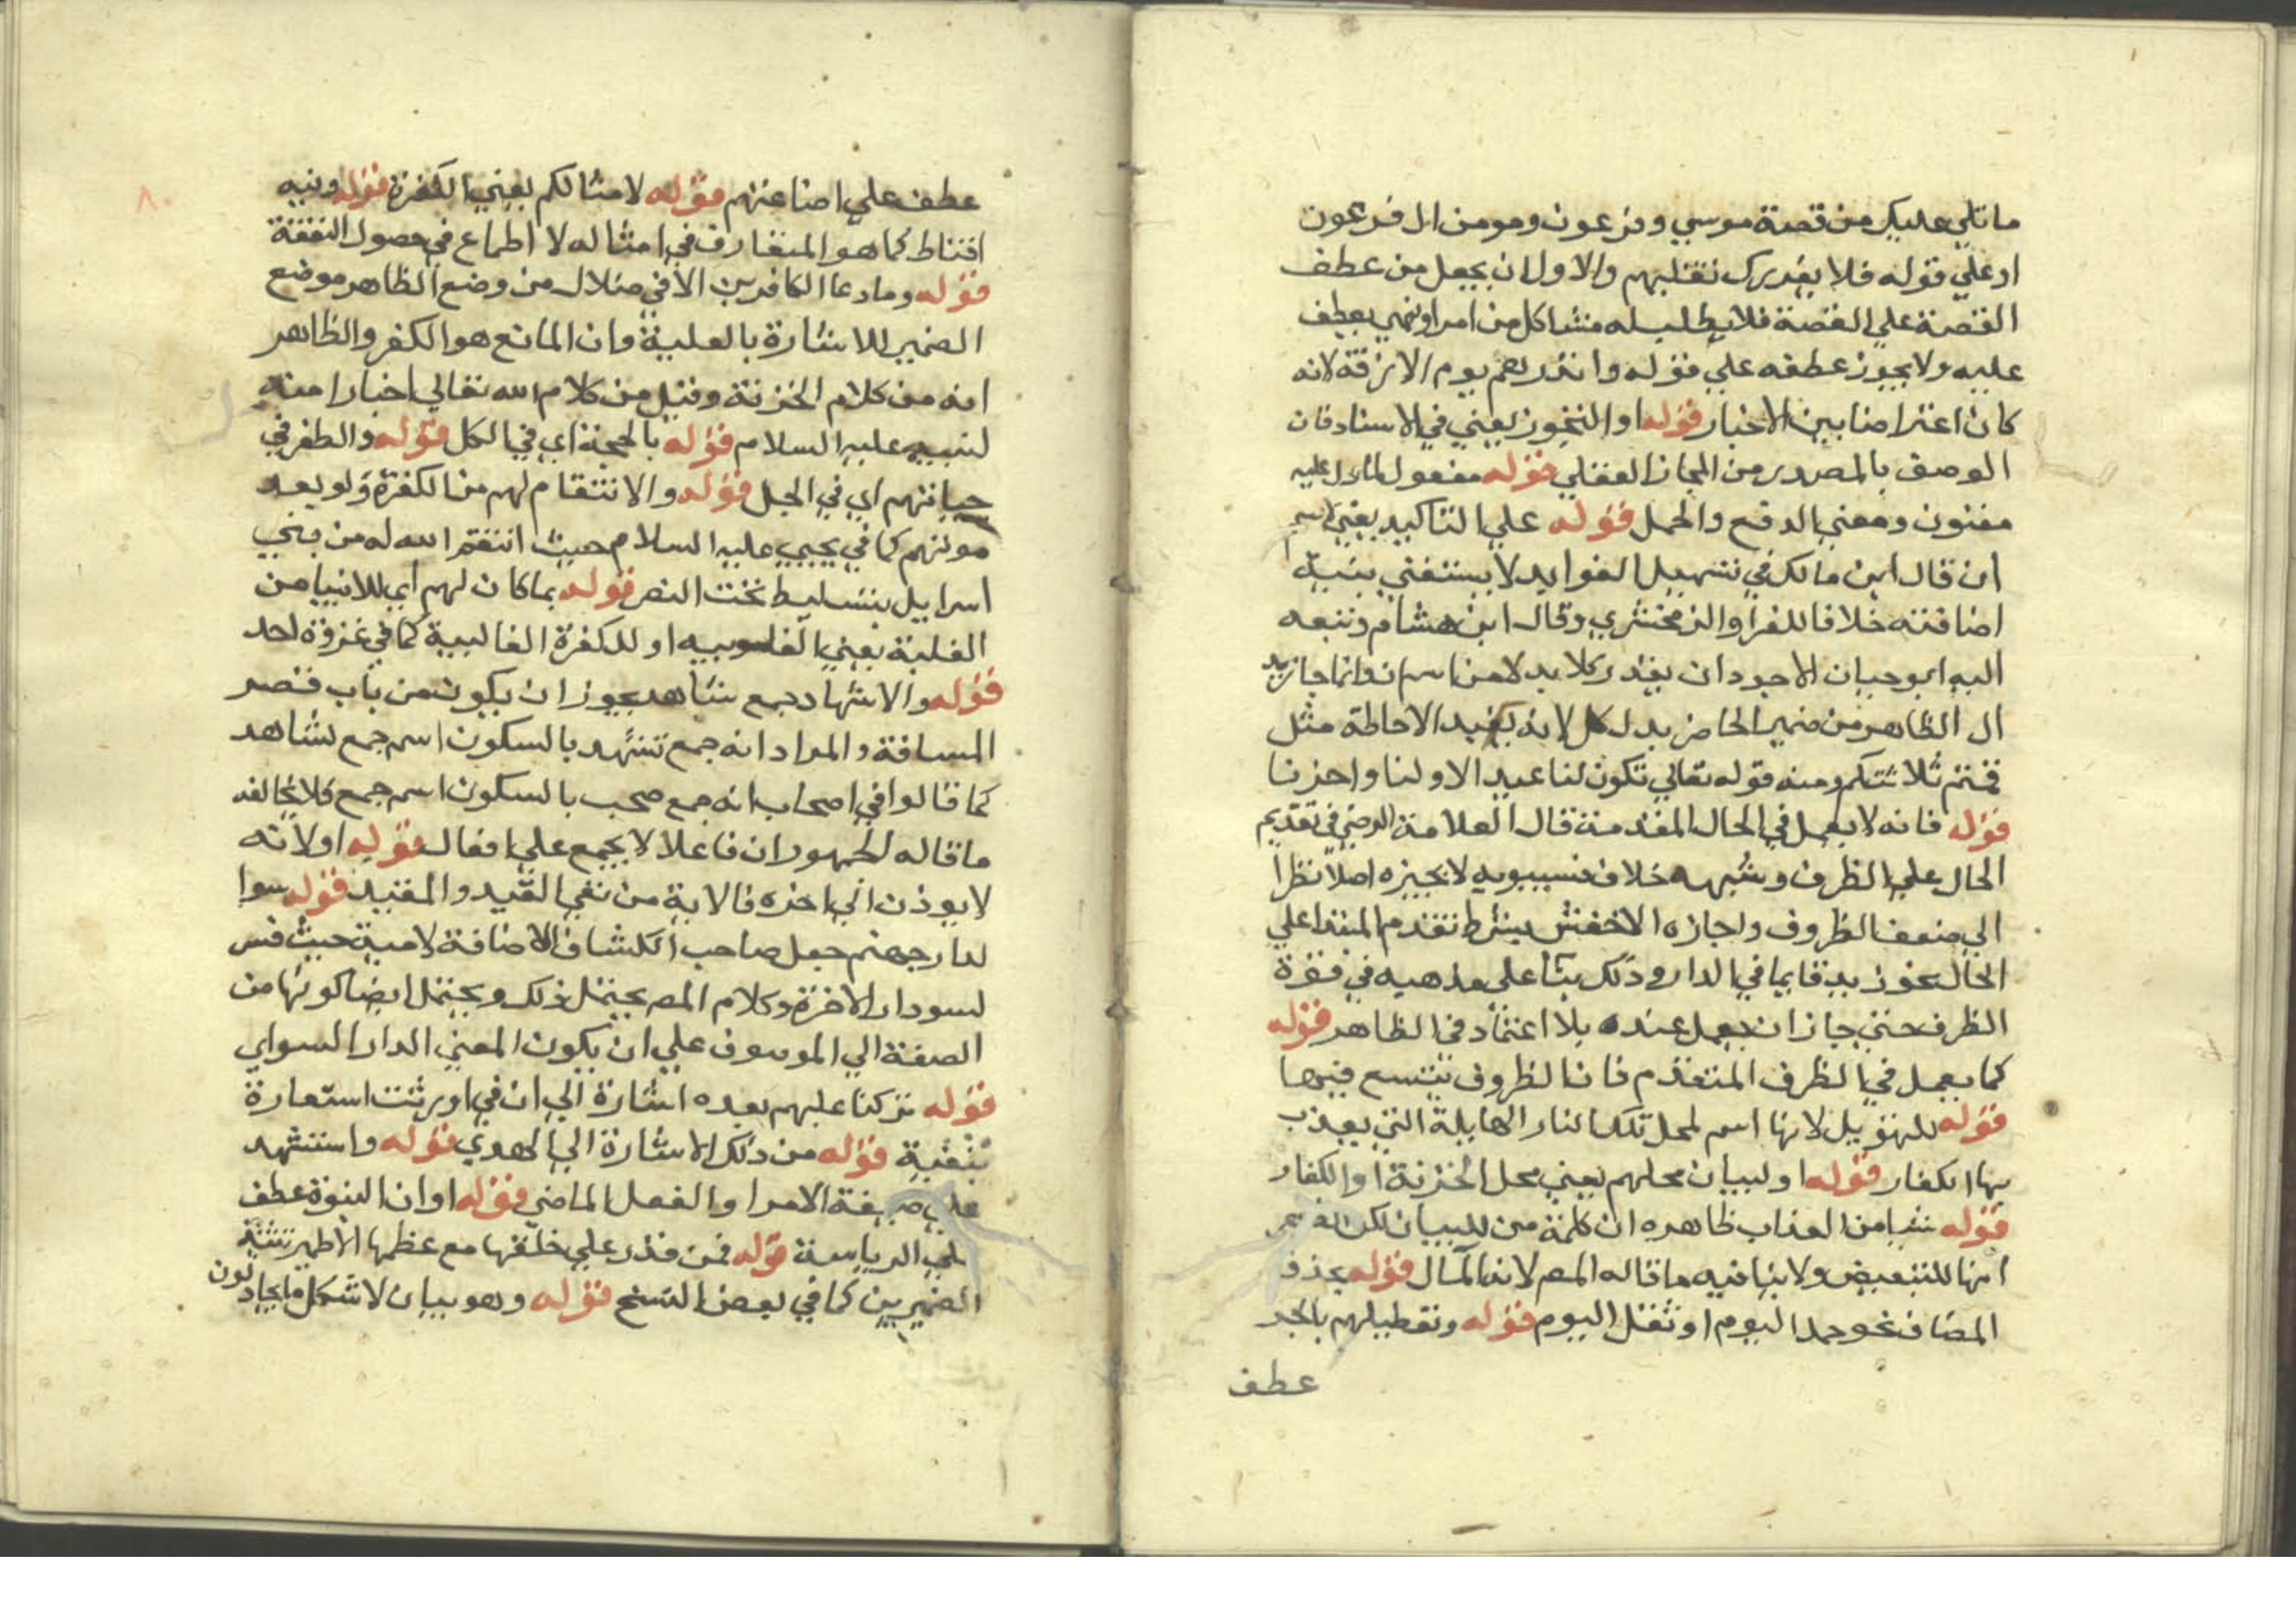 ما تلي عليك من قصة موسي وفرعون ومومن ال فرعون
او علي قوله فلا يغررك تقلبهم والاول ان يجعل من عطف
القصة علي القصة فلا يطلب له مشاكل من امر او نهي يعطف
عليه ولا يجوز عطفه علي قوله وانذرهم يوم الازفة لانه
كان اعتراضا بين الاخبار قوله او التجوز يعني في الاسناد فان
الوصف بالمصدر من المجاز العقلي قوله مفعول لما دل عليه
مغنون ومعني الدفع والحمل قوله علي التاكيد يعني لاسم
ان قال ابن مالك في تسهيل الفوايد لا يستغني بنية
اضافته خلافا للفرا والزمخشري وقال ابن هشام وتبعه
اليه ابو حيان الاجود ان يقدر كلا بدلا من اسم ان وانما جاز بد
ال الظاهر من ضمير الحاضر بدل كل لانه يفيد الاحاطة مثل
قمتم ثلاثتكم ومنه قوله تعالي تكون لنا عيدا لاولنا واخرنا
قوله فانه لا يعمل في الحال المقدمة قال العلامة الرضي في تقديم
الحال علي الظرف وشبهه خلاف فسيبويه لا يجيزه اصلا نظرا
الي ضعف الظروف واجازه الاخفش بشرط تقدم المبتدا علي
الحال نحو زيد قايما في الدار وذلك بنا علي مذهبه في قوة
الظرف حتي جاز ان يعمل عنده بلا اعتماد في الظاهر قوله
كما يعمل في الظرف المتقدم فان الظروف يتسع فيها
قوله للتهويل لانها اسم لمحل تلك النار الهايلة التي يعذب
بها الكفار قوله او لبيان محلهم يعني محل الخزنة او الكفار
قوله شيا من العذاب ظاهره ان كلمة من للبيان لكن
انها للتبعيض ولا ينافيه ما قاله المص لانه المآل قوله بحذف
المضاف نحو حمد اليوم او ثقل اليوم قوله وتعطيلهم بالجر
عطف
عطف علي اضاعتهم قوله لامثالكم يعني الكفرة قوله وفيه
اقناط كما هو المتعارف في امثاله لا اطماع في حصول النفقة
قوله وما دعا الكافرين الا في ضلال من وضع الظاهر موضع
الضمير للاشارة بالعلية وان المانع هو الكفر والظاهر
انه من كلام الخزنة وقيل من كلام الله تعالي اخبارا منه
لنبيه عليه السلام قوله بالحجة اي في الكل قوله والظفر في
حياتهم اي في الجل قوله والانتقام لهم من الكفرة ولو بعد
موتهم كما في يحيي عليه السلام حيث انتقم الله له من بني
اسراييل بتسليط بخت النصر قوله بما كان لهم اي للانبيا من
الغلبة يعني المغلوبيه او للكفرة الغالبية كما في غزوة احد
قوله والاشهاد جمع شاهد يجوز ان يكون من باب قصر
المسافة والمراد انه جمع شهد بالسكون اسم جمع لشاهد
كما قالوا في اصحاب انه جمع صحب بالسكون اسم جمع فلا يخالف
ما قاله الجمهور ان فاعلا لا يجمع علي افعال قوله او لانه
لا يوذن الي اخره فالاية من نفي القيد والمقيد قوله سوا
لدار جهنم جعل صاحب الكشاف الاضافة لامية حيث فسر
لسو دار الاخرة وكلام المص يحتمل ذلك ويحتمل ايضا كونها من
الصفة الي الموصوف علي ان يكون المعني الدار السواي
قوله تركنا عليهم بعده اشارة الي ان في اورثت استعارة
تبعية قوله من ذلك الاشارة الي الهدي قوله واستشهد
علي صيغة الامر او الفعل الماضي قوله او ان النبوة عطف
علي الرياسة قوله فمن قدر علي خلقها مع عظمها الاظهر تثنية
الضميرين كما في بعض النسخ قوله وهو بيان لاشكل ما يجادلون